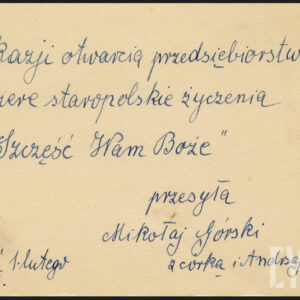 kazji otwarcia przedsiębiorstw
zere staropolskie życzenia
Szczęść Wam Boże"
przesyła
Mikołaj Górski
1. lutego z córką i Andrzej